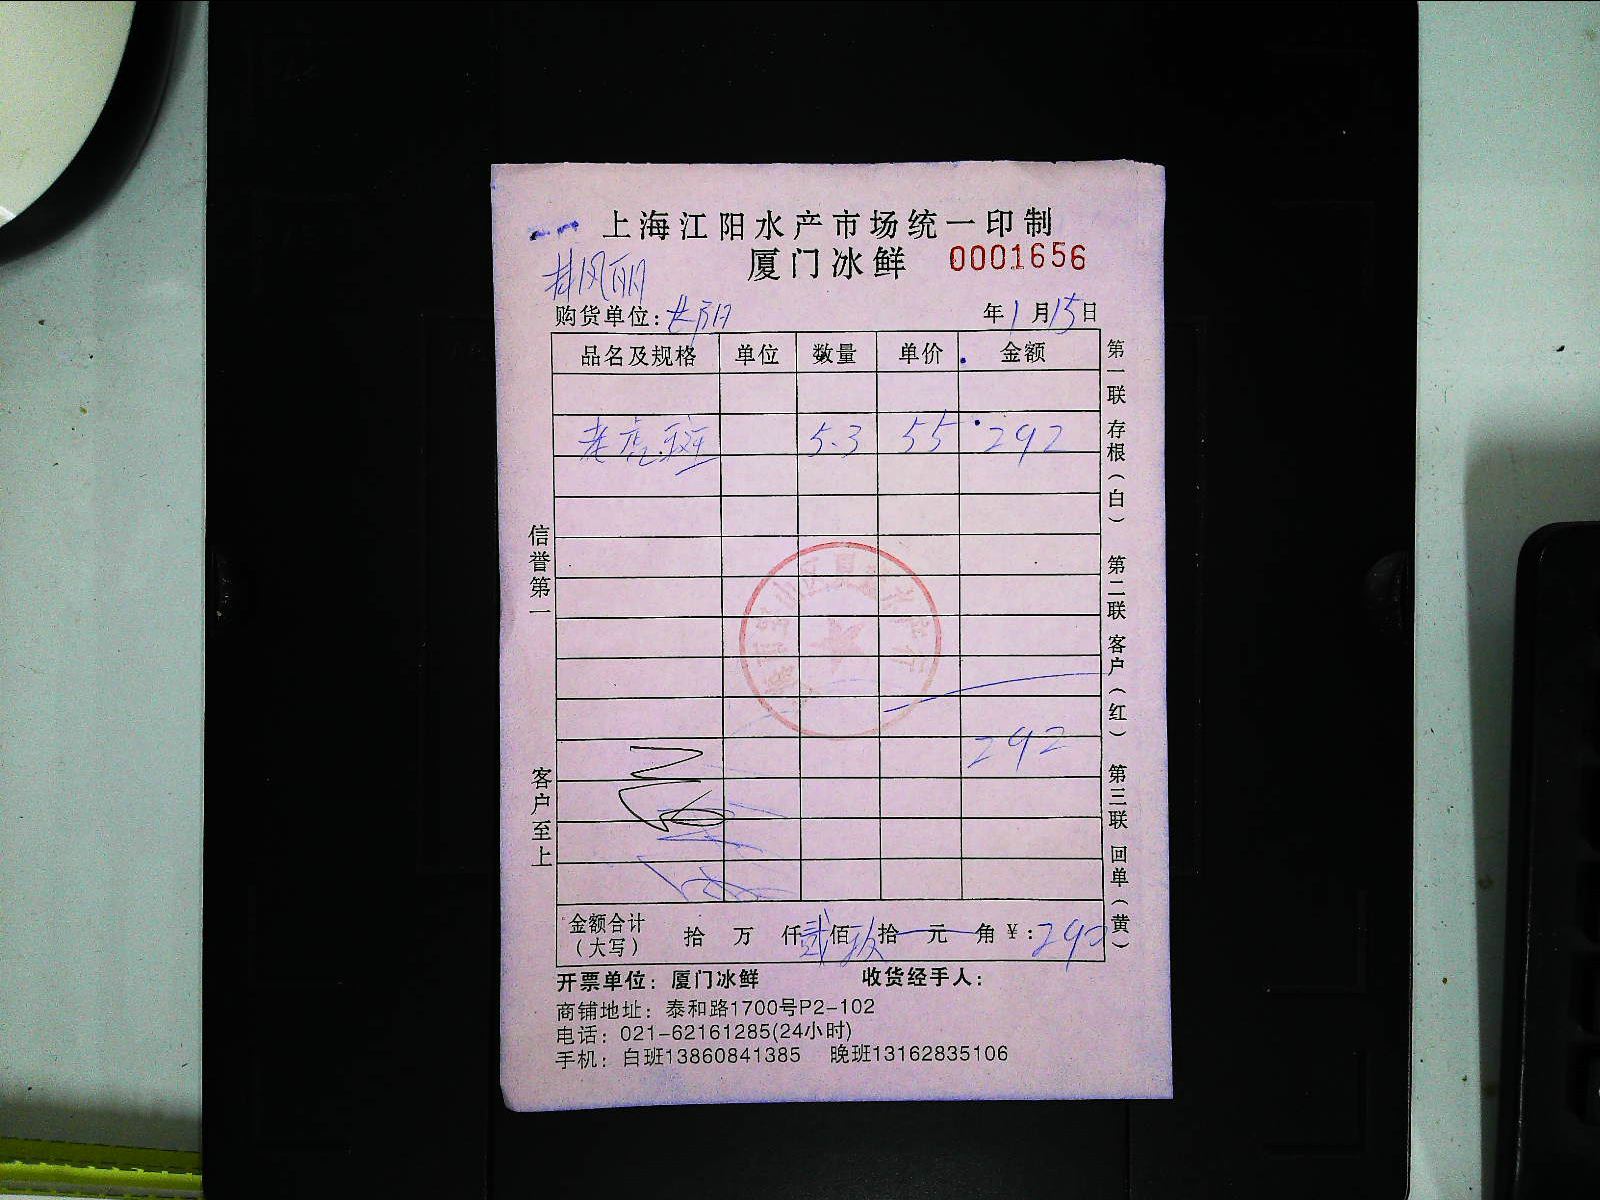 上海江阳水产市场统一印制
厦门冰鲜 0001656
购货单位: 年1月15日
品名及规格 单位 数量 单价 金额
老虎斑 5.3 55 292
292
金额合计(大写) 拾 万 仟贰佰玖拾 元 角 ¥:290
开票单位: 厦门冰鲜 收货经手人:
商铺地址: 泰和路1700号P2-102
电话: 021-62161285(24小时)
手机: 白班13860841385 晚班13162835106
信誉第一
客户至上
第一联 存根(白)
第二联 客户(红)
第三联 回单(黄)